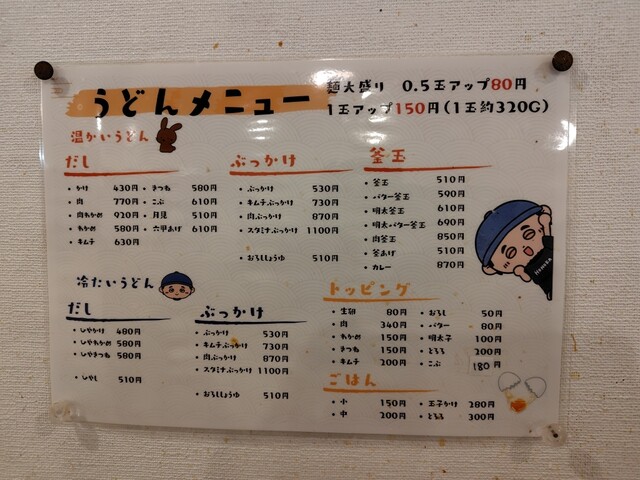 うどんメニュー
麺大盛り 0.5玉アップ80円
1玉アップ150円(1玉約320G)
温かいうどん
だし
・かけ 430円 ・きつね 580円
・肉 770円 ・こぶ 610円
・肉わかめ 920円 ・月見 510円
・わかめ 580円 ・六甲あげ 610円
・キムチ 630円
ぶっかけ
・ぶっかけ 530円
・キムチぶっかけ 730円
・肉ぶっかけ 870円
・スタミナぶっかけ 1100円
・おろししょうゆ 510円
釜玉
・釜玉 510円
・バター釜玉 590円
・明太釜玉 610円
・明太バター釜玉 690円
・肉釜玉 850円
・釜あげ 510円
・カレー 870円
冷たいうどん
だし
・ひやかけ 480円
・ひやわかめ 580円
・ひやきつね 580円
・ひやし 510円
ぶっかけ
・ぶっかけ 530円
・キムチぶっかけ 730円
・肉ぶっかけ 870円
・スタミナぶっかけ 1100円
・おろししょうゆ 510円
トッピング
・生卵 80円 ・おろし 50円
・肉 340円 ・バター 80円
・わかめ 150円 ・明太子 100円
・きつね 150円 ・とろろ 200円
・キムチ 200円 ・こぶ 180円
ごはん
・小 150円 ・玉子かけ 280円
・中 200円 ・とろろ 300円